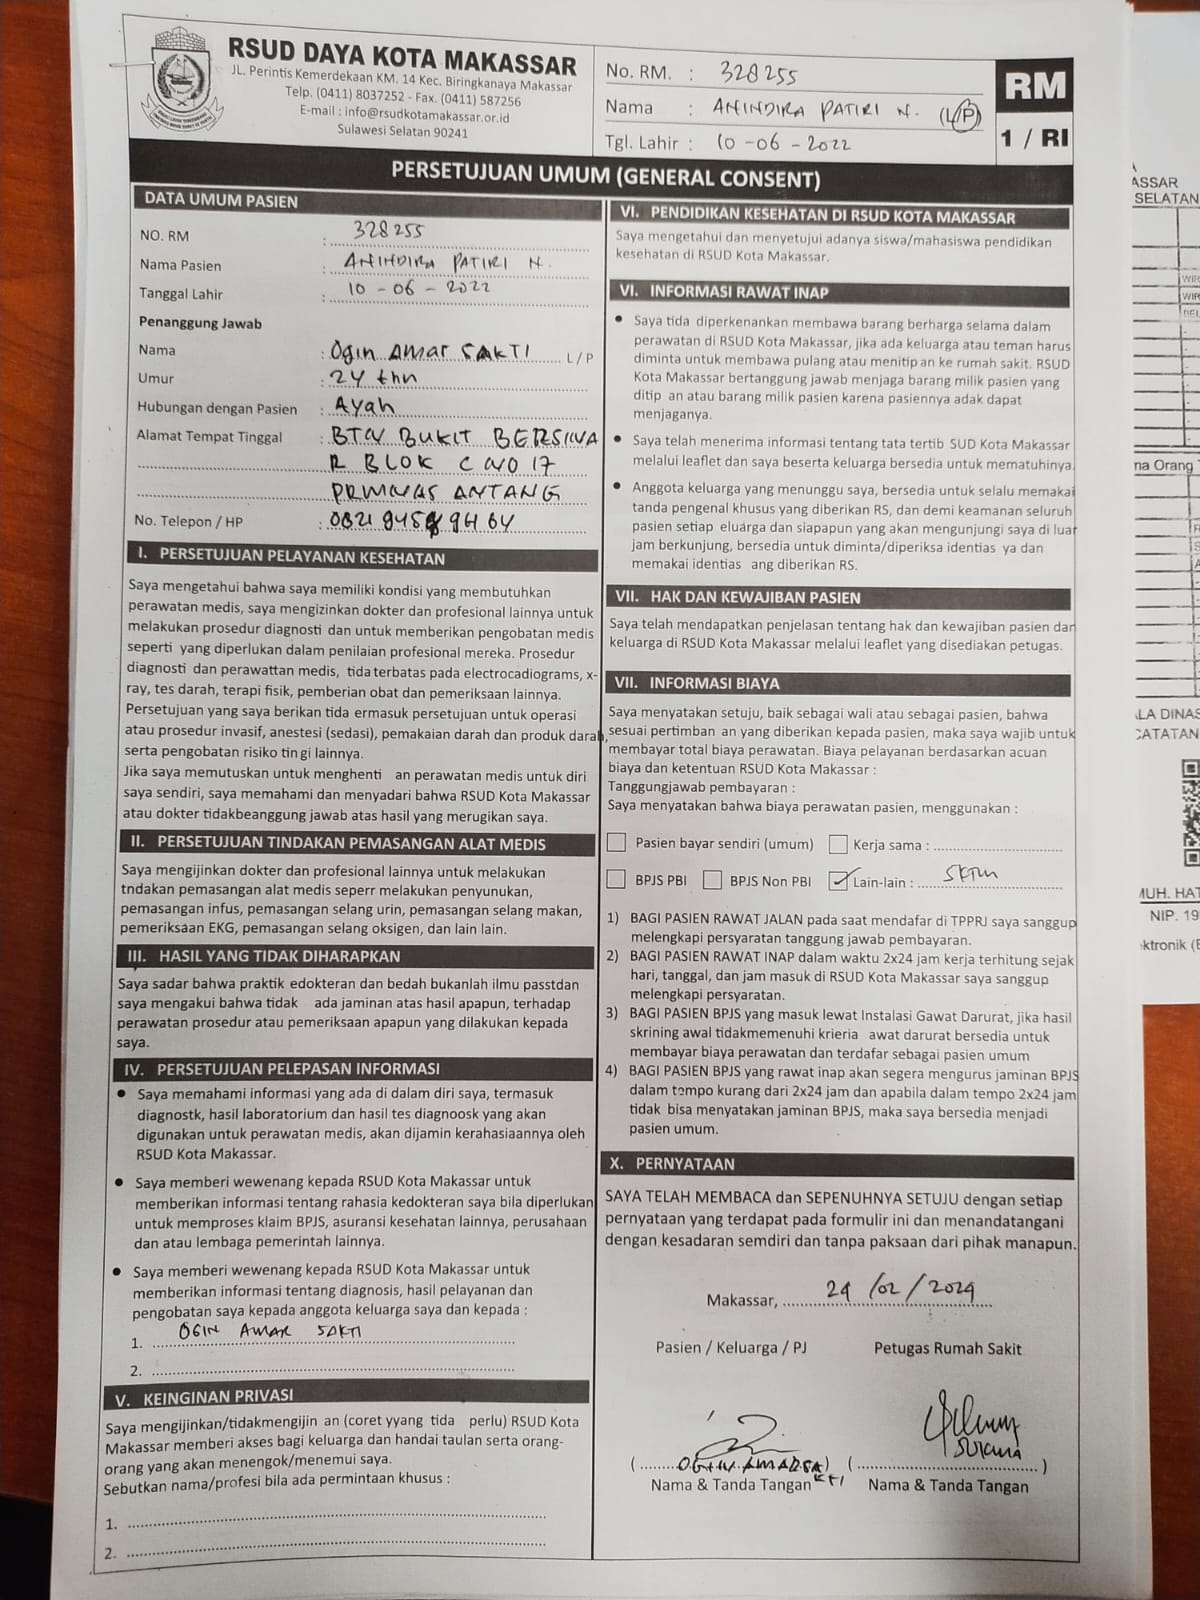 RSUD DAYA KOTA MAKASSAR
JL. Perintis Kemerdekaan KM. 14 Kec. Biringkanaya Makassar
Telp. (0411) 8037252 - Fax. (0411) 587256
E-mail : info@rsudkotamakassar.or.id
Sulawesi Selatan 90241
No. RM. : 328255
Nama : ANINDIRA PATIRI N. (L/P)
Tgl. Lahir : 10-06-2022
RM
1 / RI
PERSETUJUAN UMUM (GENERAL CONSENT)
DATA UMUM PASIEN
NO. RM : 328255
Nama Pasien : ANINDIRA PATIRI N.
Tanggal Lahir : 10-06-2022
Penanggung Jawab
Nama : Ogin AMAR SAKTI L/P
Umur : 24 thn
Hubungan dengan Pasien : Ayah
Alamat Tempat Tinggal : BTN BUKIT BERSINA
R BLOK C NO 17
PRMNAS ANTANG
No. Telepon / HP :
I. PERSETUJUAN PELAYANAN KESEHATAN
Saya mengetahui bahwa saya memiliki kondisi yang membutuhkan
perawatan medis, saya mengizinkan dokter dan profesional lainnya untuk
melakukan prosedur diagnosti dan untuk memberikan pengobatan medis
seperti yang diperlukan dalam penilaian profesional mereka. Prosedur
diagnosti dan perawattan medis, tida terbatas pada electrocadiograms, x-
ray, tes darah, terapi fisik, pemberian obat dan pemeriksaan lainnya.
Persetujuan yang saya berikan tida ermasuk persetujuan untuk operasi
atau prosedur invasif, anestesi (sedasi), pemakaian darah dan produk darah,
serta pengobatan risiko tin gi lainnya.
Jika saya memutuskan untuk menghenti an perawatan medis untuk diri
saya sendiri, saya memahami dan menyadari bahwa RSUD Kota Makassar
atau dokter tidakbeanggung jawab atas hasil yang merugikan saya.
II. PERSETUJUAN TINDAKAN PEMASANGAN ALAT MEDIS
Saya mengijinkan dokter dan profesional lainnya untuk melakukan
tndakan pemasangan alat medis seperr melakukan penyunukan,
pemasangan infus, pemasangan selang urin, pemasangan selang makan,
pemeriksaan EKG, pemasangan selang oksigen, dan lain lain.
III. HASIL YANG TIDAK DIHARAPKAN
Saya sadar bahwa praktik edokteran dan bedah bukanlah ilmu passtdan
saya mengakui bahwa tidak ada jaminan atas hasil apapun, terhadap
perawatan prosedur atau pemeriksaan apapun yang dilakukan kepada
saya.
IV. PERSETUJUAN PELEPASAN INFORMASI
• Saya memahami informasi yang ada di dalam diri saya, termasuk
diagnostk, hasil laboratorium dan hasil tes diagnoosk yang akan
digunakan untuk perawatan medis, akan dijamin kerahasiaannya oleh
RSUD Kota Makassar.
• Saya memberi wewenang kepada RSUD Kota Makassar untuk
memberikan informasi tentang rahasia kedokteran saya bila diperlukan
untuk memproses klaim BPJS, asuransi kesehatan lainnya, perusahaan
dan atau lembaga pemerintah lainnya.
• Saya memberi wewenang kepada RSUD Kota Makassar untuk
memberikan informasi tentang diagnosis, hasil pelayanan dan
pengobatan saya kepada anggota keluarga saya dan kepada :
1. OGIN AMAR SAKTI
2.
V. KEINGINAN PRIVASI
Saya mengijinkan/tidakmengijin an (coret yyang tida perlu) RSUD Kota
Makassar memberi akses bagi keluarga dan handai taulan serta orang-
orang yang akan menengok/menemui saya.
Sebutkan nama/profesi bila ada permintaan khusus :
1.
2.
VI. PENDIDIKAN KESEHATAN DI RSUD KOTA MAKASSAR
Saya mengetahui dan menyetujui adanya siswa/mahasiswa pendidikan
kesehatan di RSUD Kota Makassar.
VI. INFORMASI RAWAT INAP
• Saya tida diperkenankan membawa barang berharga selama dalam
perawatan di RSUD Kota Makassar, jika ada keluarga atau teman harus
diminta untuk membawa pulang atau menitip an ke rumah sakit. RSUD
Kota Makassar bertanggung jawab menjaga barang milik pasien yang
ditip an atau barang milik pasien karena pasiennya adak dapat
menjaganya.
• Saya telah menerima informasi tentang tata tertib SUD Kota Makassar
melalui leaflet dan saya beserta keluarga bersedia untuk mematuhinya.
• Anggota keluarga yang menunggu saya, bersedia untuk selalu memakai
tanda pengenal khusus yang diberikan RS, dan demi keamanan seluruh
pasien setiap eluárga dan siapapun yang akan mengunjungi saya di luar
jam berkunjung, bersedia untuk diminta/diperiksa identias ya dan
memakai identias ang diberikan RS.
VII. HAK DAN KEWAJIBAN PASIEN
Saya telah mendapatkan penjelasan tentang hak dan kewajiban pasien dan
keluarga di RSUD Kota Makassar melalui leaflet yang disediakan petugas.
VII. INFORMASI BIAYA
Saya menyatakan setuju, baik sebagai wali atau sebagai pasien, bahwa
sesuai pertimban an yang diberikan kepada pasien, maka saya wajib untuk
membayar total biaya perawatan. Biaya pelayanan berdasarkan acuan
biaya dan ketentuan RSUD Kota Makassar :
Tanggungjawab pembayaran :
Saya menyatakan bahwa biaya perawatan pasien, menggunakan :
Pasien bayar sendiri (umum) Kerja sama :
BPJS PBI BPJS Non PBI Lain-lain : SKTM
1) BAGI PASIEN RAWAT JALAN pada saat mendafar di TPPRJ saya sanggup
melengkapi persyaratan tanggung jawab pembayaran.
2) BAGI PASIEN RAWAT INAP dalam waktu 2x24 jam kerja terhitung sejak
hari, tanggal, dan jam masuk di RSUD Kota Makassar saya sanggup
melengkapi persyaratan.
3) BAGI PASIEN BPJS yang masuk lewat Instalasi Gawat Darurat, jika hasil
skrining awal tidakmemenuhi krieria awat darurat bersedia untuk
membayar biaya perawatan dan terdafar sebagai pasien umum
4) BAGI PASIEN BPJS yang rawat inap akan segera mengurus jaminan BPJS
dalam tempo kurang dari 2x24 jam dan apabila dalam tempo 2x24 jam
tidak bisa menyatakan jaminan BPJS, maka saya bersedia menjadi
pasien umum.
X. PERNYATAAN
SAYA TELAH MEMBACA dan SEPENUHNYA SETUJU dengan setiap
pernyataan yang terdapat pada formulir ini dan menandatangani
dengan kesadaran semdiri dan tanpa paksaan dari pihak manapun.
Makassar, 24/02/2024
Pasien / Keluarga / PJ Petugas Rumah Sakit
(OGIN AMAR SAKTI) ( )
Nama & Tanda Tangan Nama & Tanda Tangan
ASSAR
SELATAN
WIR
WIR
na Orang
ALA DINAS
CATATAN
MUH. HAT
NIP. 19
ktronik (